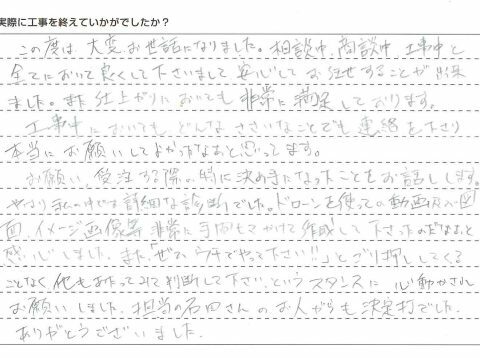 実際に工事を終えていかがでしたか？
この度は、大変お世話になりました。相談中、商談中、工事中と
全てにおいて良くして下さいまして安心してお任せすることが出来
ました。また仕上がりにおいても非常に満足しております。
工事中においてもどんなささいなことでも連絡を下さり
本当にお願いしてよかったなあと思ってます。
お願い、受注する際の特に決め手になったことをお話しします。
やはり私の中では詳細な診断でした。ドローンを使っての動画及び図
面、イメージ画像等非常に手間もかけて作成して下さったのだなあと
感じました。また、「ぜひウチでやって下さい!!」とゴリ押ししてくる
ことなく他もあたってみて判断して下さいというスタンスに心動かされ
お願いしました。担当の石田さんのお人がらも決定打でした。
ありがとうございました。